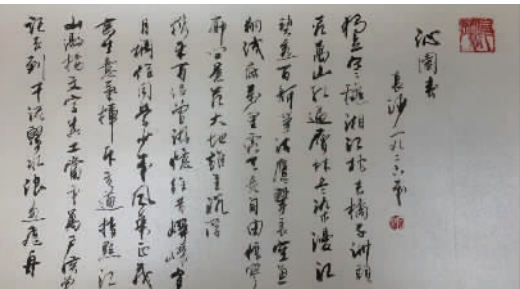 沁園春
長沙一九二六年
獨立寒秋湘江北去橘子洲頭
看萬山红遍層林盡染漫江
碧透百舸争流鷹擊長空魚
翔浅底萬霜天自由悵寥
廓問蒼茫大地誰主沉浮
携来百侣曾游憶往昔崢嶸歲
月稠恰同學少年風華正茂
書生意氣揮斥方遒指點江
山激揚文字糞土當年萬户侯曾
记否到中流擊水浪遏飛舟